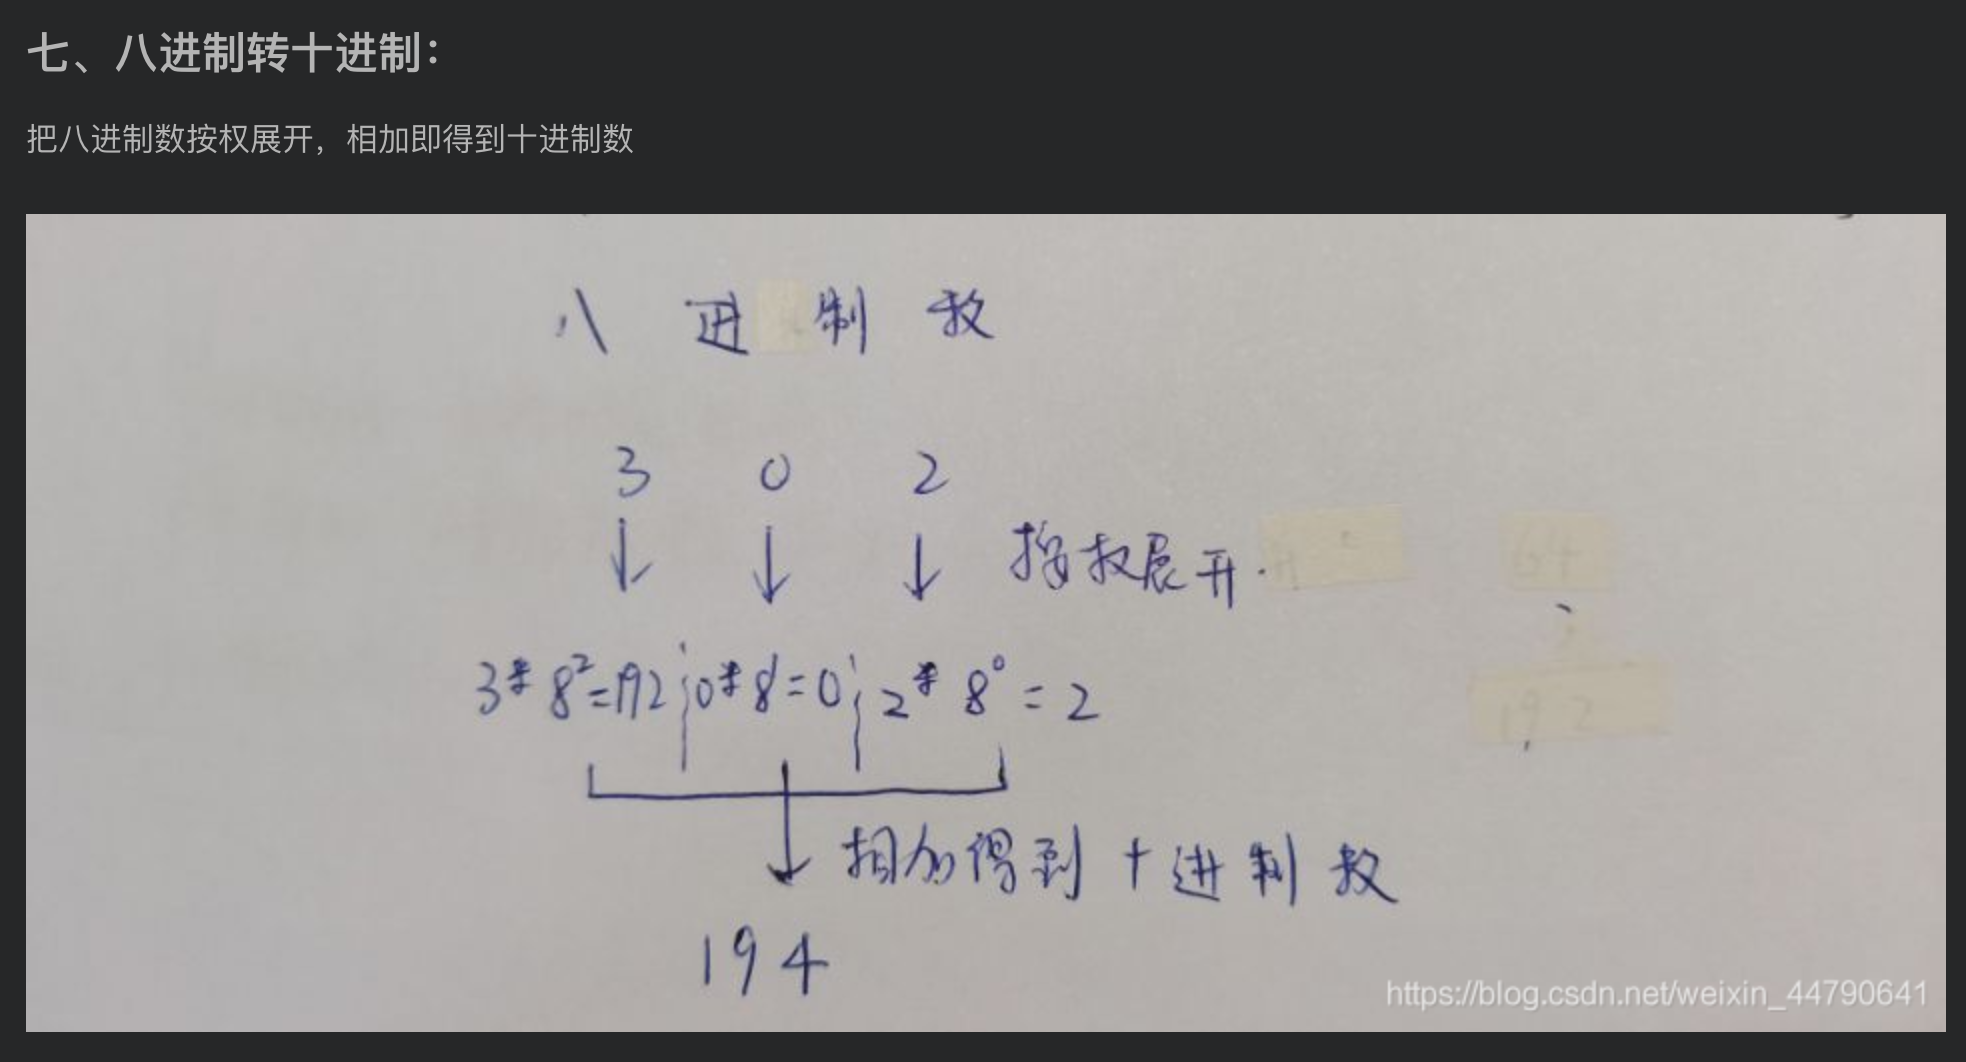 七、八进制转十进制：
把八进制数按权展开，相加即得到十进制数
八进制数
3 0 2
按权展开.
3*8²=192;0*8¹=0;2*8⁰=2
相加得到十进制数
194
https://blog.csdn.net/weixin_44790641